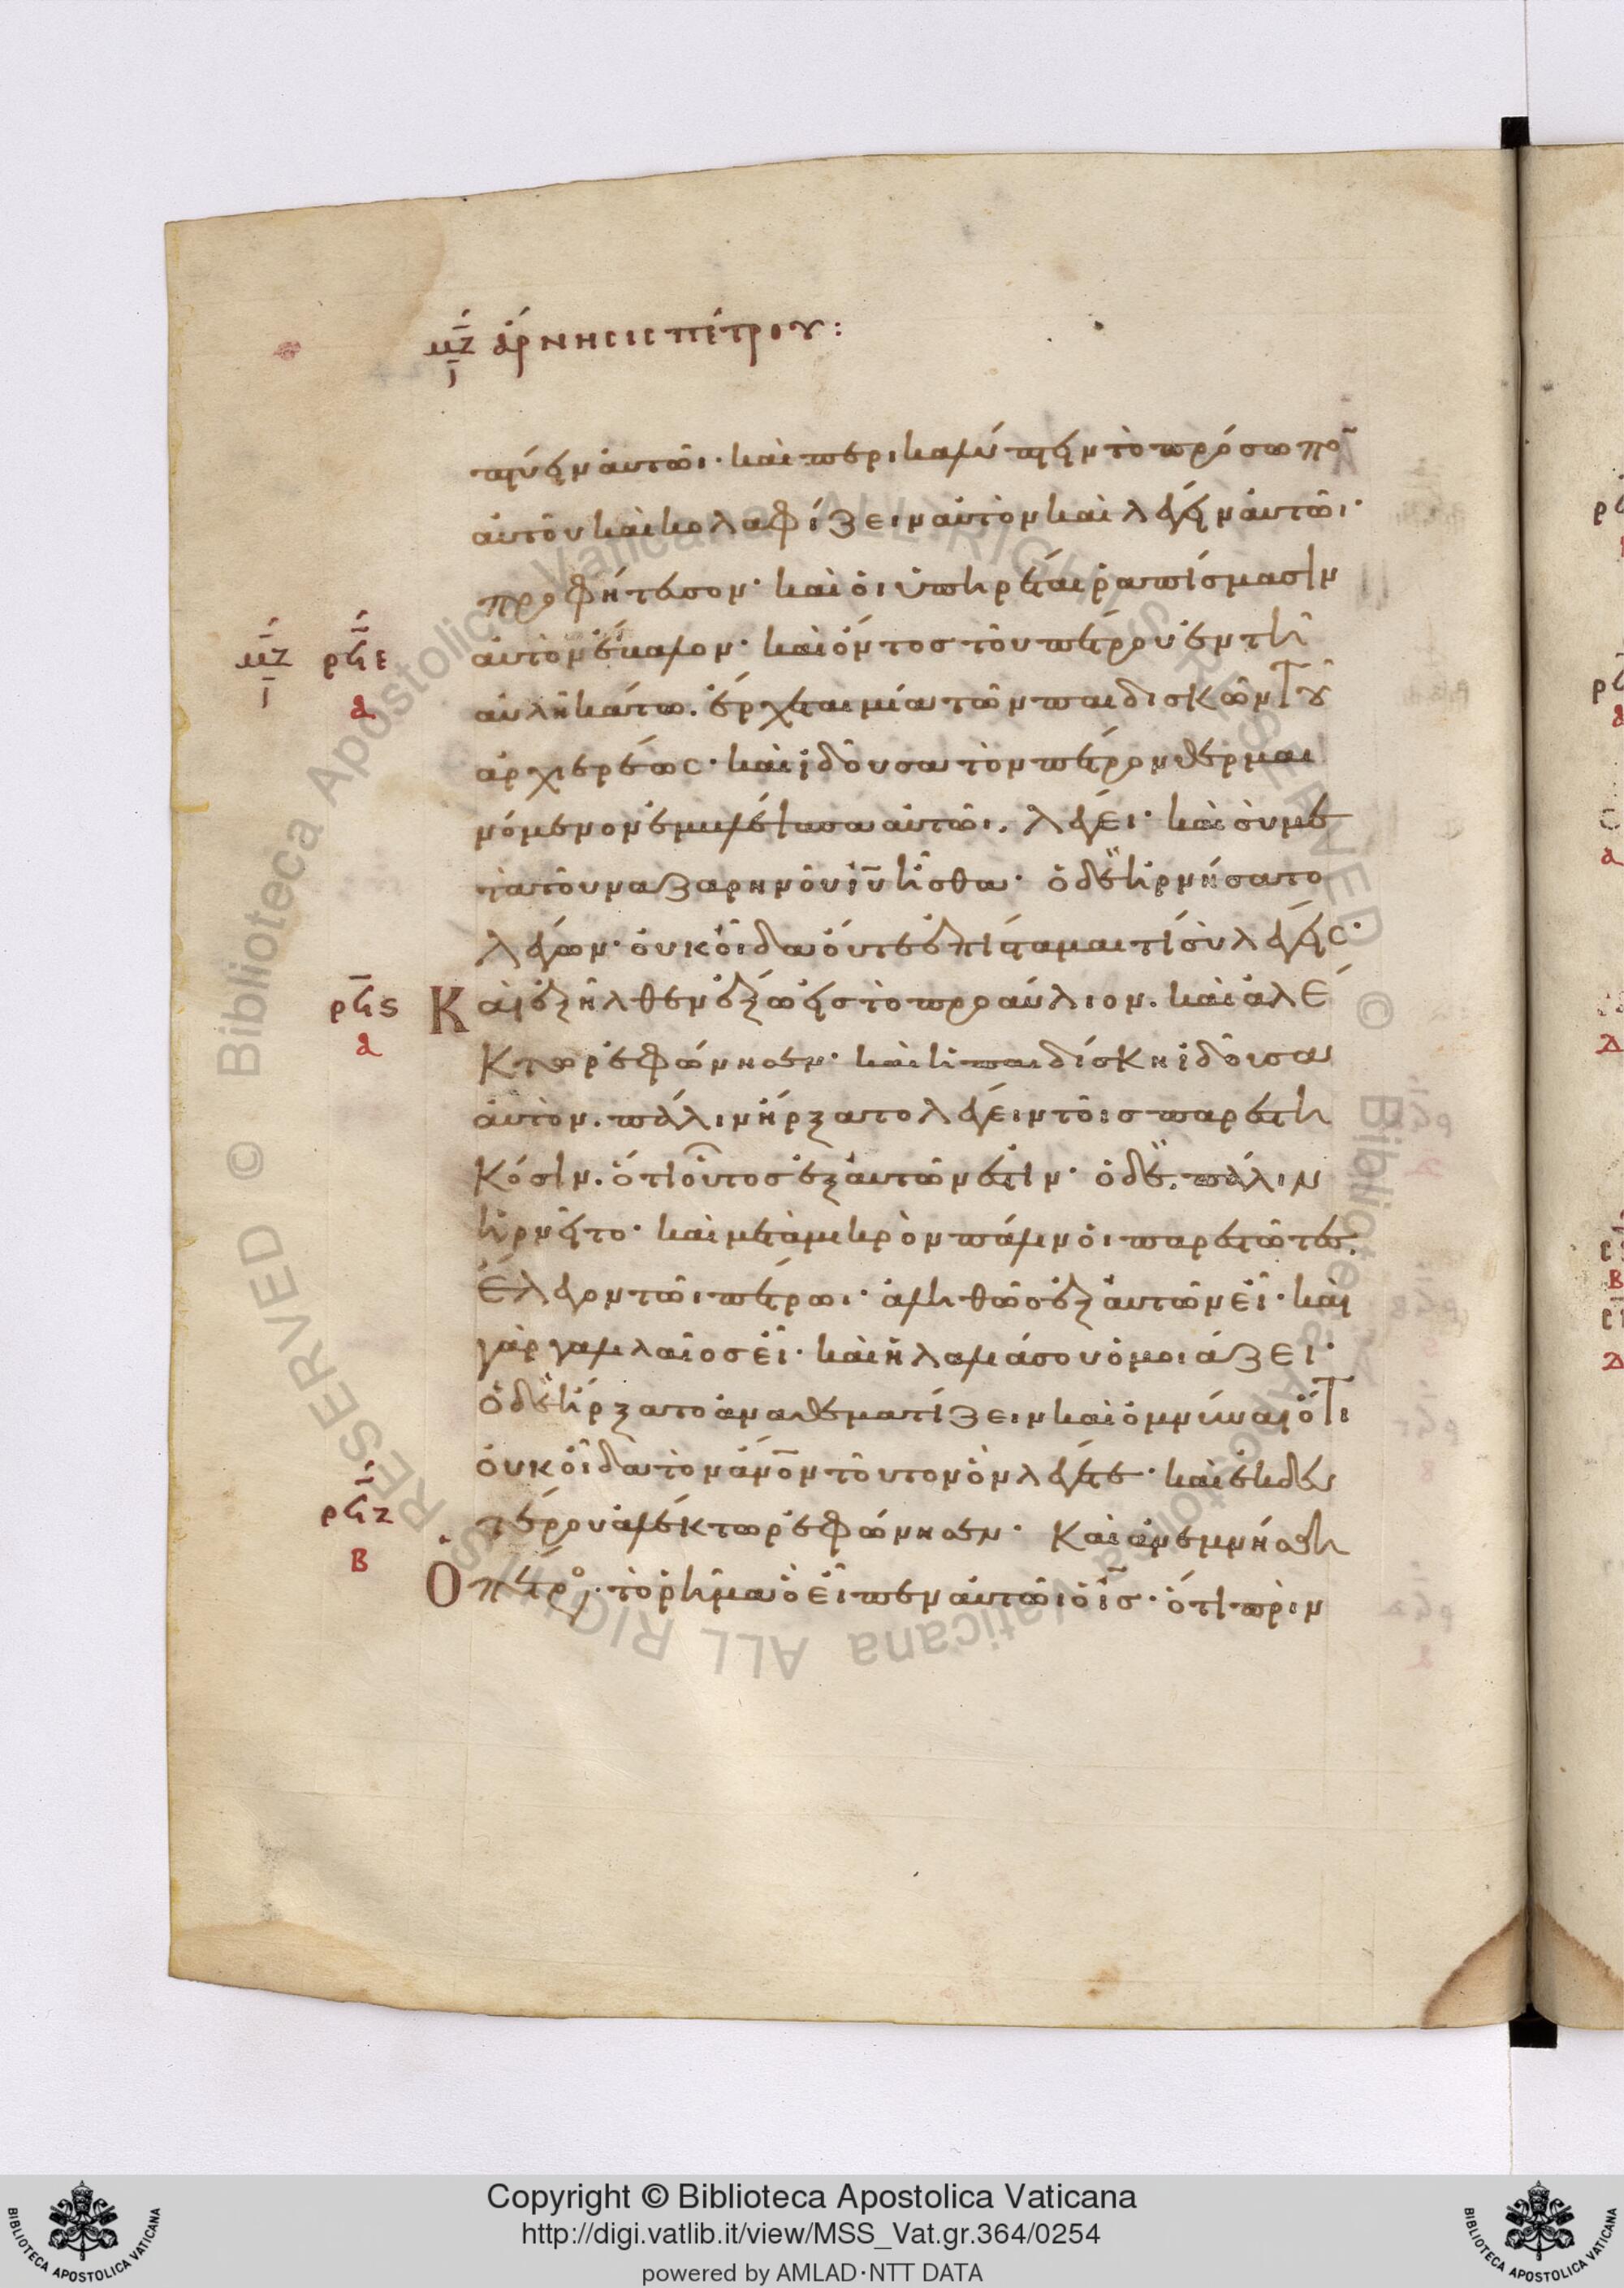 μζ ἄρνησις πέτρου:
πτύειν αὐτῶι· καὶ περικαλύπτειν τὸ πρόσωπο̄
αὐτοῦ καὶ κολαφίζειν αὐτὸν καὶ λέγειν αὐτῶι·
προφήτευσον· καὶ οἱ ὑπηρέται ῥαπίσμασιν
μζ ρϟε αὐτὸν ἔβαλον· καὶ ὄντος τοῦ πέτρου ἐν τῆ
α αὐλῆ κάτω. ἔρχεται μία τῶν παιδισκῶν τοῦ
ἀρχιερέως· καὶ ἰδοῦσα τὸν πέτρον θερμαι
νόμενον ἐμβλέψασα αὐτῶι. λέγει· καὶ σὺ με
τὰ τοῦ ναζαρηνοῦ ἰῦ ἦσθα· ὁ δὲ ἠρνήσατο
λέγων· οὐκ οἶδα οὔτε ἐπίσταμαι τί σὺ λέγεις·
ρϟς Καὶ ἐξῆλθεν ἔξω εἰς τὸ προαύλιον. καὶ ἀλέ
α κτωρ ἐφώνησεν· καὶ ἡ παιδίσκη ἰδοῦσα
αὐτὸν. πάλιν ἤρξατο λέγειν τοῖς παρεστη
κόσιν. ὅτι οὗτος ἐξ αὐτῶν ἐστιν· ὁ δὲ. πάλιν
ἠρνεῖτο· καὶ μετὰ μικρὸν πάλιν οἱ παρεστῶτες.
ἔλεγον τῶι πέτρωι· ἀληθῶς ἐξ αὐτῶν εἶ· καὶ
γὰρ γαλιλαῖος εἶ· καὶ ἡ λαλιά σου ὁμοιάζει·
ὁ δὲ ἤρξατο ἀναθεματίζειν καὶ ὀμνύναι ὅτι
οὐκ οἶδα τὸν ἄνο̄ν τοῦτον ὃν λέγετε· καὶ ἐκ δευ
ρϟζ τέρου ἀλέκτωρ ἐφώνησεν· Καὶ ἀνεμνήσθη
β Ὁ πέτρος. τὸ ῥῆμα ὃ εἶπεν αὐτῶι ὁ ἰς̄· ὅτι πρὶν
Copyright © Biblioteca Apostolica Vaticana
http://digi.vatlib.it/view/MSS_Vat.gr.364/0254
powered by AMLAD·NTT DATA